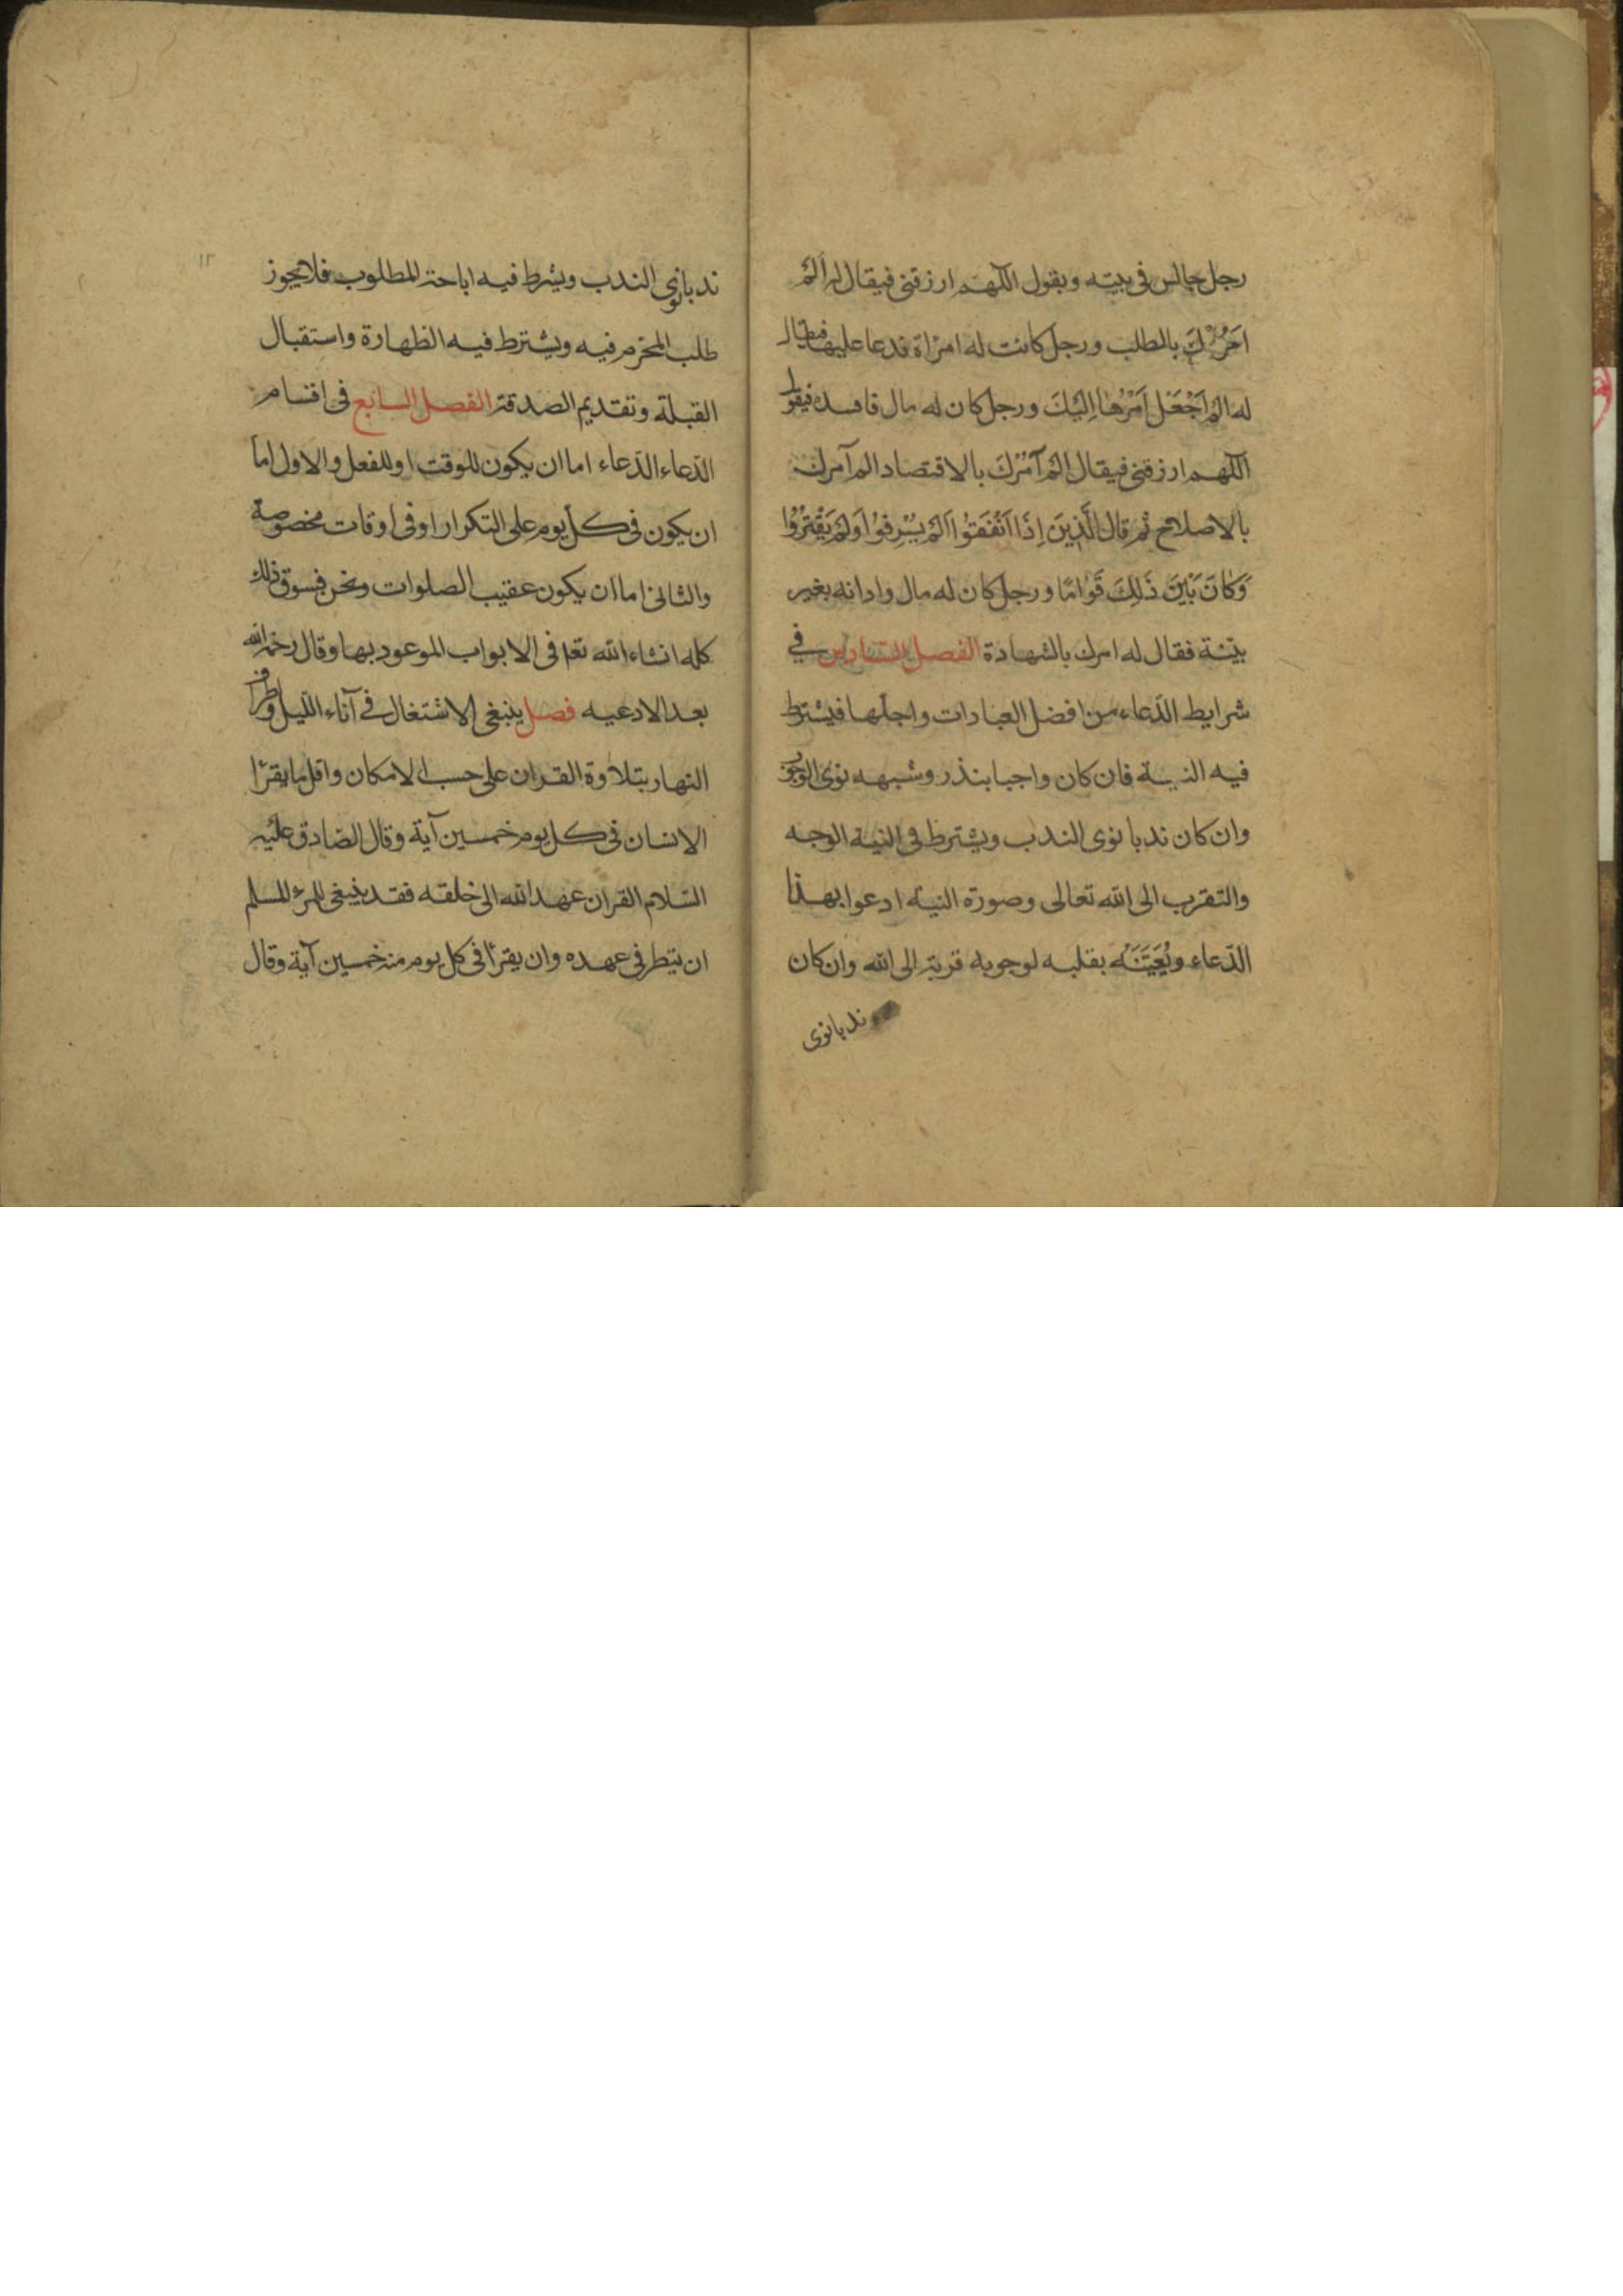 رجل جالس فى بيته ويقول اللهم ارزقنى فيقال له اَلَمْ
آمُرْكَ بالطلب ورجل كانت له امراة فدعا عليها فيقال
له اَلَمْ اَجْعَلْ اَمْرَهَا اِلَيْكَ ورجل كان له مال فافسده فيقول
اللهم ارزقنى فيقال اَلَمْ آمُرْكَ بالاقتصاد الم آمرك
بالاصلاح ثم قال الَّذِينَ اِذَا اَنْفَقُوا لَمْ يُسْرِفُوا وَلَمْ يَقْتُرُوا
وَكَانَ بَيْنَ ذَلِكَ قَوَامًا ورجل كان له مال وادانه بغير
بيّنة فقال له امرك بالشهادة الفصل السادس في
شرايط الدّعاء من افضل العبادات واجلها فيشترط
فيه النية فان كان واجبا بنذر وشبهه نوى الوجوب
وان كان ندبا نوى الندب ويشترط فى النية الوجه
والتقرب الى الله تعالى وصورة النية ادعوا بهذا
الدّعاء ويُعَيِّنَهُ بقلبه لوجوبه قربة الى الله وان كان
ندبا نوى
١٢
ندبا نوى الندب ويشرط فيه اباحة المطلوب فلا يجوز
طلب المحرم فيه ويشترط فيه الطهارة واستقبال
القبلة وتقديم الصدقة الفصل السابع فى اقسام
الدّعاء الدّعاء اما ان يكون للوقت او للفعل والاول اما
ان يكون فى كل يوم على التكرار او فى اوقات مخصوصة
والثانى اما ان يكون عقيب الصلوات ونحن نسوق ذلك
كله انشاء الله تعا فى الابواب الموعود بها وقال رحمه الله
بعد الادعيه فصل ينبغى الاشتغال في آناء اللّيل واطراف
النهار بتلاوة القران على حسب الامكان واقل ما يقرأ
الانسان فى كل يوم خمسين آية وقال الصّادق عليه
السّلام القران عهد الله الى خلقه فقد ينبغى للمرء المسلم
ان ينظر فى عهده وان يقرأ فى كل يوم منه خمسين آية وقال